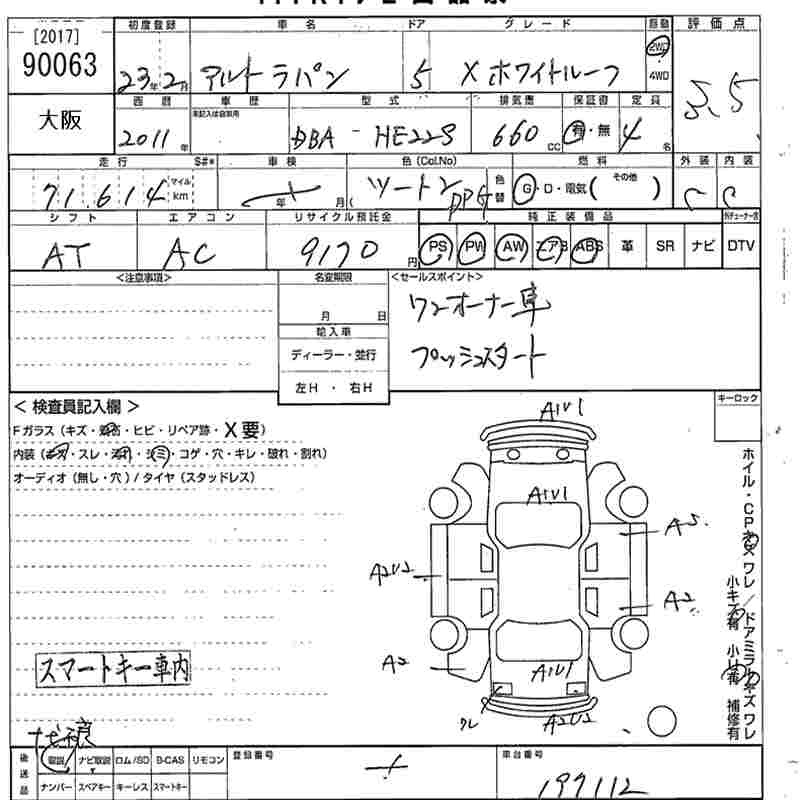 [2017]
90063
大阪
初度登録 車名 ドア グレード 駆動 評価点
23年2月 アルトラパン 5 X ホワイトルーフ 2WD 4WD 3.5
西暦 車歴 型式 排気量 保証書 定員
2011年 未記入は自家用 DBA - HE22S 660cc 有・無 4名
走行 S#* 車検 色(Col.No) 燃料 外装 内装
71,614 マイル km 年 月( ツートン 色替 G・D・電気( その他 ) C C
シフト エアコン リサイクル預託金 純正装備品
AT AC 9170円 PS PW AW エアB ABS 革 SR ナビ DTV
<注意事項> 名変期限 <セールスポイント>
月 日
ワンオーナー車
輸入車
プッシュスタート
ディーラー・並行
左H ・ 右H
キーロック
< 検査員記入欄 >
Fガラス(キズ・ ・ヒビ・リペア跡・X要)
内装(キズ・スレ・ ・シミ・コゲ・穴・キレ・破れ・割れ)
オーディオ(無し・穴)/タイヤ(スタッドレス)
A1U1
A1U1
A2U2
A2
A2
A1U1
A2U2
スマートキー車内
後送品 取説 ナビ取説 ロム/SD B-CAS リモコン 登録番号 車台番号
ナンバー スペアキー キーレス スマートキー 199112